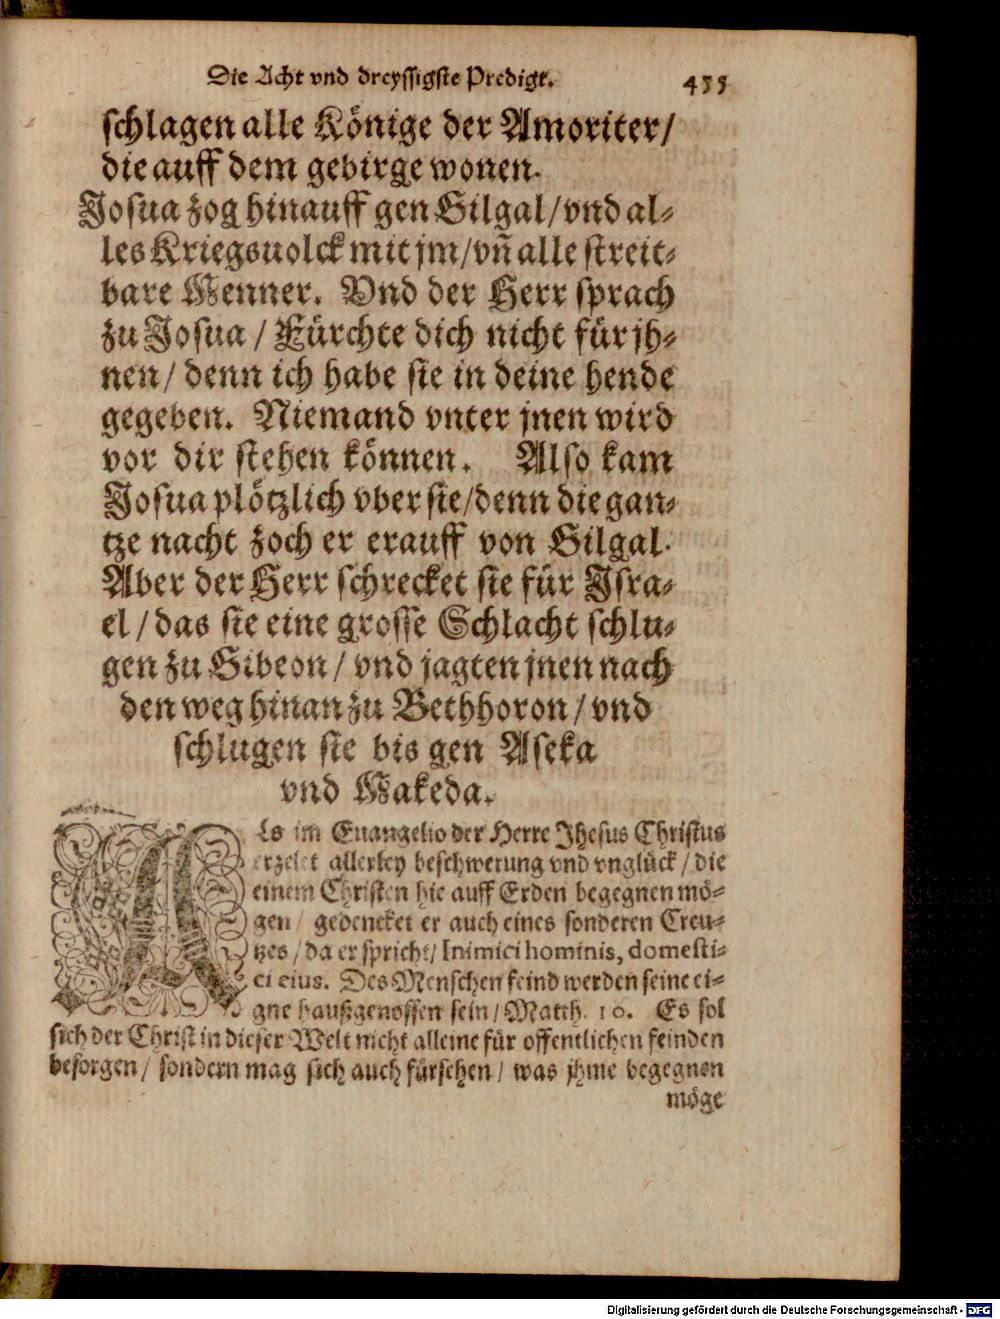 Die Acht vnd dreyssigste Predigt. 455
schlagen alle Könige der Amoriter/
die auff dem gebirge wonen.
Josua zog hinauff gen Gilgal/vnd al-
les Kriegsuolck mit jm/vñ alle streit-
bare Menner. Vnd der Herr sprach
zu Josua / Fürchte dich nicht für jh-
nen/ denn ich habe sie in deine hende
gegeben. Niemand vnter jnen wird
vor dir stehen können. Also kam
Josua plötzlich vber sie/denn die gan-
tze nacht zoch er erauff von Gilgal.
Aber der Herr schrecket sie für Jsra-
el / das sie eine grosse Schlacht schlu-
gen zu Gibeon / vnd jagten jnen nach
den weg hinan zu Bethhoron / vnd
schlugen sie bis gen Aseka
vnd Makeda.
Als im Euangelio der Herre Jhesus Christus
erzelet allerley beschwerung vnd vnglück / die
einem Christen hie auff Erden begegnen mö-
gen / gedencket er auch eines sonderen Creu-
tzes / da er spricht/ Inimici hominis, domesti-
ci eius. Des Menschen feind werden seine ei-
gne haußgenossen sein / Matth. 10. Es sol
sich der Christ in dieser Welt nicht alleine für offentlichen feinden
besorgen / sondern mag sich auch fürsehen / was jhme begegnen
möge
Digitalisierung gefördert durch die Deutsche Forschungsgemeinschaft - DFG